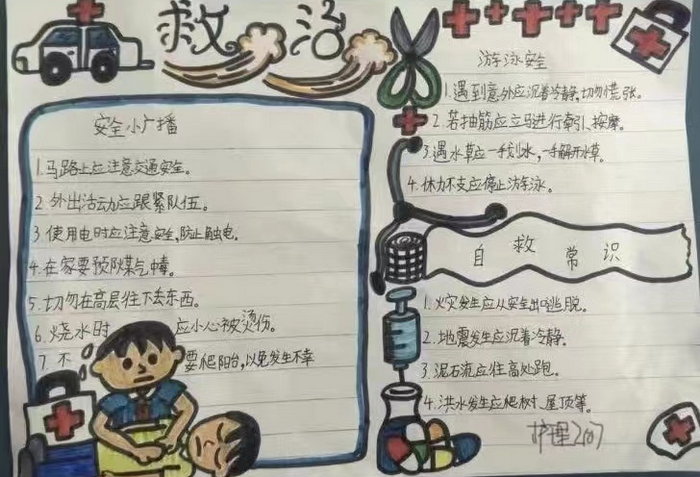 救治
安全小广播
1.马路上应注意交通安全。
2.外出活动应跟紧队伍。
3.使用电时应注意安全,防止触电。
4.在家要预防煤气中毒。
5.切勿在高层往下丢东西。
6.烧水时应小心被烫伤。
7.不要爬阳台,以免发生不幸
游泳安全
1.遇到意外应沉着冷静,切勿慌张。
2.若抽筋应立马进行牵引、按摩。
3.遇水草应一手划水,一手解开水草。
4.体力不支应停止游泳。
自救常识
1.火灾发生应从安全出口逃脱。
2.地震发生应沉着冷静。
3.泥石流应往高处跑。
4.洪水发生应爬树、屋顶等。
护理2107